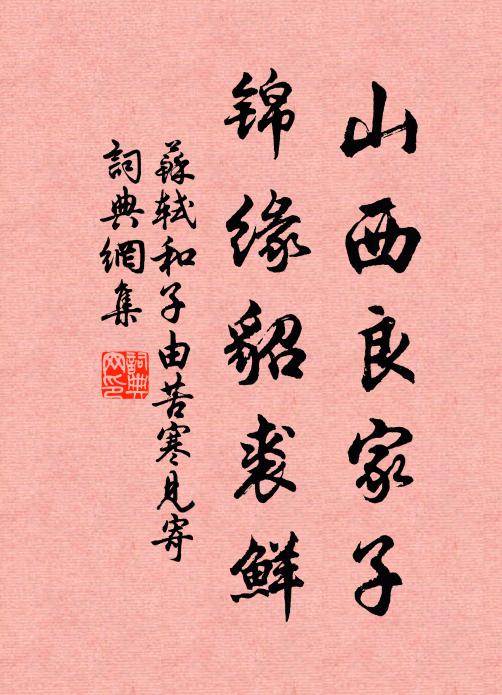 山西良家子
锦缘貂裘鲜
蘇軾和子由苦寒見寄
詞典網集
詞典网印